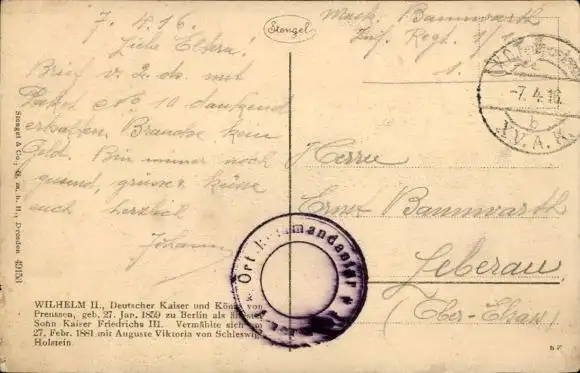 7. 4. 16.
Liebe Eltern!
Brief v. 2. ds. mit
Paket No. 10 dankend
erhalten. Brauche kein
Geld. Bin immer noch
gesund, grüsse, küsse
euch herzlich
Johann
Stengel
Musk. Bannwarth
Inf. Regt.
1.
-7.4.16.
b
XV. A. K.
Herrn
Ernst Bannwarth
Leberau
(Ober-Elsass)
Orts-Kommandantur
Stengel & Co., G. m. b. H., Dresden 49153
WILHELM II., Deutscher Kaiser und König von
Preussen, geb. 27. Jan. 1859 zu Berlin als ältester
Sohn Kaiser Friedrichs III. Vermählte sich am
27. Febr. 1881 mit Auguste Viktoria von Schleswig-
Holstein